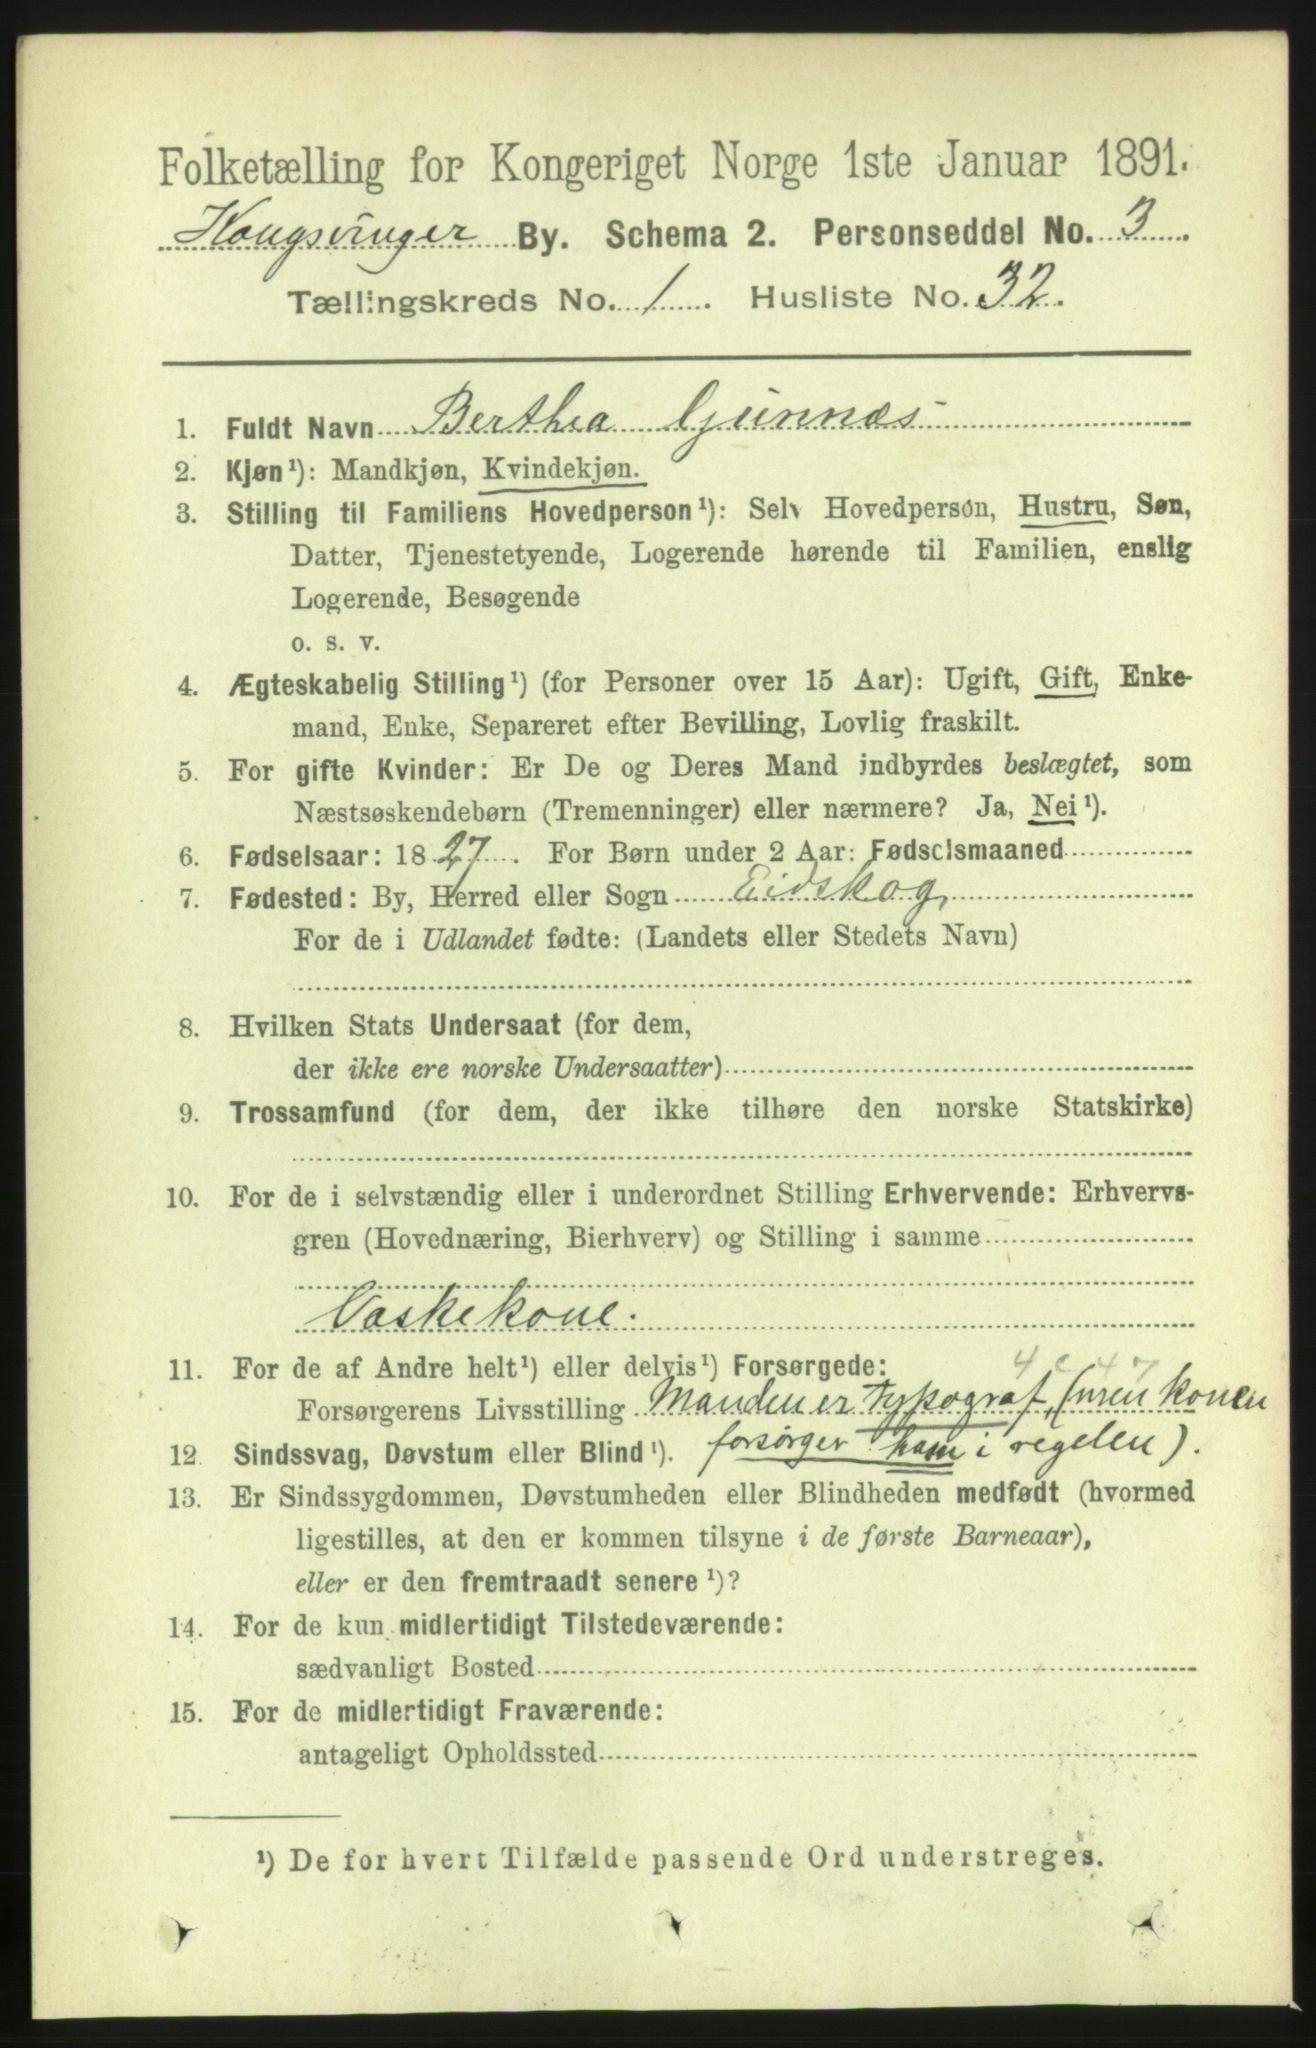 Folketælling for Kongeriget Norge 1ste Januar 1891.
Kongsvinger By. Schema 2. Personseddel No. 3
Tællingskreds No. 1. Husliste No. 32.
1. Fuldt Navn Berthea Gunnes
2. Kjøn¹): Mandkjøn, Kvindekjøn.
3. Stilling til Familiens Hovedperson¹): Selv Hovedperson, Hustru, Søn,
Datter, Tjenestetyende, Logerende hørende til Familien, enslig
Logerende, Besøgende
o. s. v.
4. Ægteskabelig Stilling¹) (for Personer over 15 Aar): Ugift, Gift, Enke-
mand, Enke, Separeret efter Bevilling, Lovlig fraskilt.
5. For gifte Kvinder: Er De og Deres Mand indbyrdes beslægtet, som
Næstsøskendebørn (Tremenninger) eller nærmere? Ja, Nei¹).
6. Fødselsaar: 1827. For Børn under 2 Aar: Fødselsmaaned
7. Fødested: By, Herred eller Sogn Eidskog
For de i Udlandet fødte: (Landets eller Stedets Navn)
8. Hvilken Stats Undersaat (for dem,
der ikke ere norske Undersaatter)
9. Trossamfund (for dem, der ikke tilhøre den norske Statskirke)
10. For de i selvstændig eller i underordnet Stilling Erhvervende: Erhvervs-
gren (Hovednæring, Bierhverv) og Stilling i samme
Vaskekone.
11. For de af Andre helt¹) eller delvis¹) Forsørgede:
Forsørgerens Livsstilling Manden er typograf, (men konen
12. Sindssvag, Døvstum eller Blind¹). forsørger ham i regelen).
13. Er Sindssygdommen, Døvstumheden eller Blindheden medfødt (hvormed
ligestilles, at den er kommen tilsyne i de første Barneaar),
eller er den fremtraadt senere¹)?
14. For de kun midlertidigt Tilstedeværende:
sædvanligt Bosted
15. For de midlertidigt Fraværende:
antageligt Opholdssted
¹) De for hvert Tilfælde passende Ord understreges.